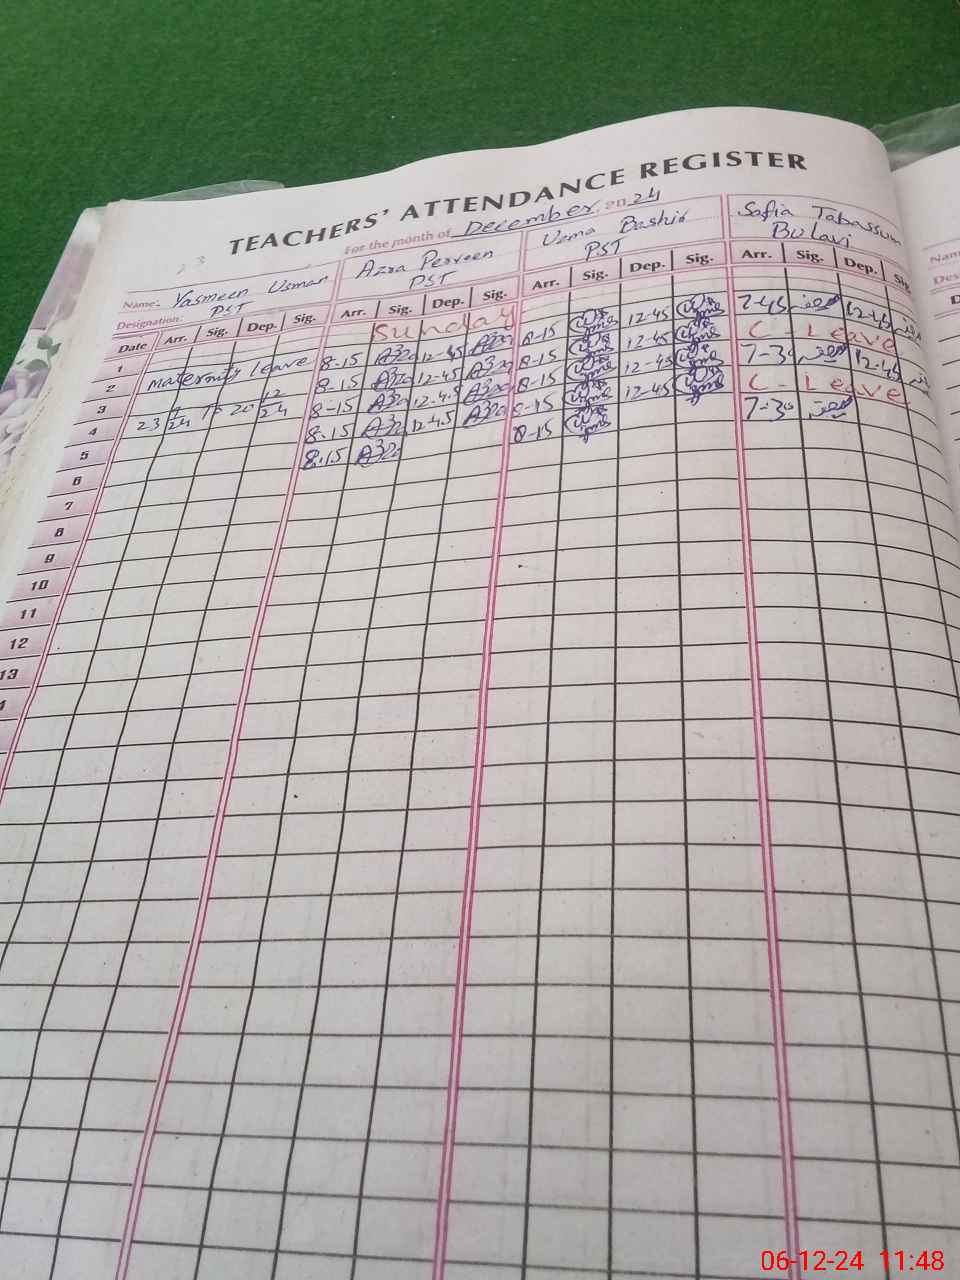 TEACHERS' ATTENDANCE REGISTER
For the month of December 2024
23
Name: Yasmeen Usman Azra Perveen Uzma Bashir Safia Tabassum
Designation: PST PST PST Bulavi
Date Arr. Sig. Dep. Sig. Arr. Sig. Dep. Sig. Arr. Sig. Dep. Sig. Arr. Sig. Dep. Sig.
1 Sunday
2 Maternity leave 8-15 12-45 8-15 12-45 7-45 12-45
3 8.15 12-45 8-15 12-45 C- Leave
4 23 9/24 to 20 12/24 8-15 12-45 8-15 12-45 7-30 12-45
5 8.15 12-45 8-15 12-45 C- Leave
6 8.15 8-15 7-30
7
8
9
10
11
12
13
Nam
Des
D
06-12-24 11:48